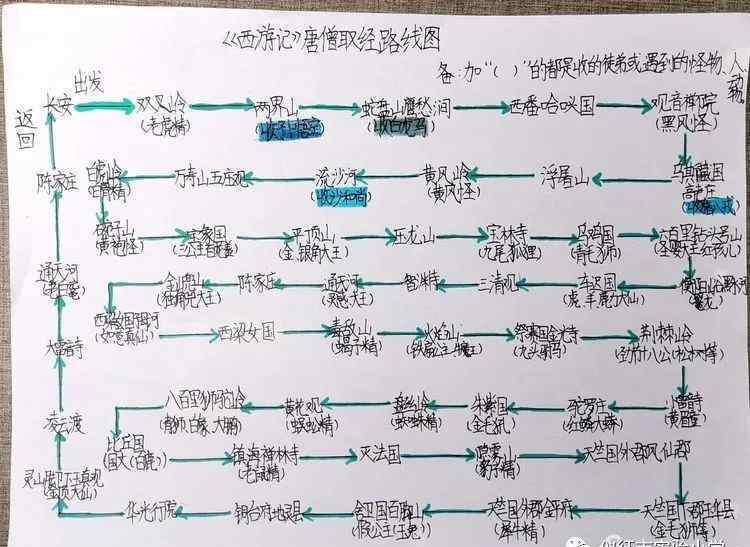 《西游记》唐僧取经路线图
备:加“( )”的都是收的徒弟或遇到的怪物、人、动物
出发
返回
长安 双叉岭 两界山 蛇盘山鹰愁涧 西番哈咇国 观音禅院
(老虎精) (收孙悟空) (收白龙马) (黑风怪)
陈家庄 白虎岭 万寿山五庄观 流沙河 黄风岭 浮屠山 乌斯藏国
高老庄
(白骨精) (收沙和尚) (黄风怪) (收猪八戒)
碗子山 宝象国 平顶山 压龙山 宝林寺 乌鸡国 六百里钻头号山
(黄袍怪) (三公主百花羞) (金、银角大王) (九尾狐狸) (青毛狮) (圣婴大王红孩儿)
通天河 金山兜山 陈家庄 通天河 智渊寺 三清观 车迟国
(老白鼋) (独角兕大王) (灵感大王) (虎、羊、鹿力大仙) (鼍龙)
西梁女国 毒敌山 火焰山 祭赛国金光寺 荆棘岭
(如意真仙) (蝎子精) (铁扇公主、牛魔王) (九头驸马) (劲节十八公(松树精))
大雷音寺
八百里狮驼岭 黄花观 盘丝岭 朱紫国 驼罗庄 小雷音寺
(青狮、白象、大鹏) (蜈蚣精) (蜘蛛精) (金毛犼) (红鳞大蟒) (黄眉怪)
凌云渡
比丘国 镇海禅林寺 灭法国 隐雾山 天竺国外郡凤仙郡
(国丈(白鹿)) (老鼠精) (豹子精)
灵山脚下玉真观 华光行院 铜台府地灵县 舍卫国百脚山 天竺国外郡金平府 天竺国下郡玉华县
(金顶大仙) (假公主(玉兔)) (犀牛精) (金毛狮等)